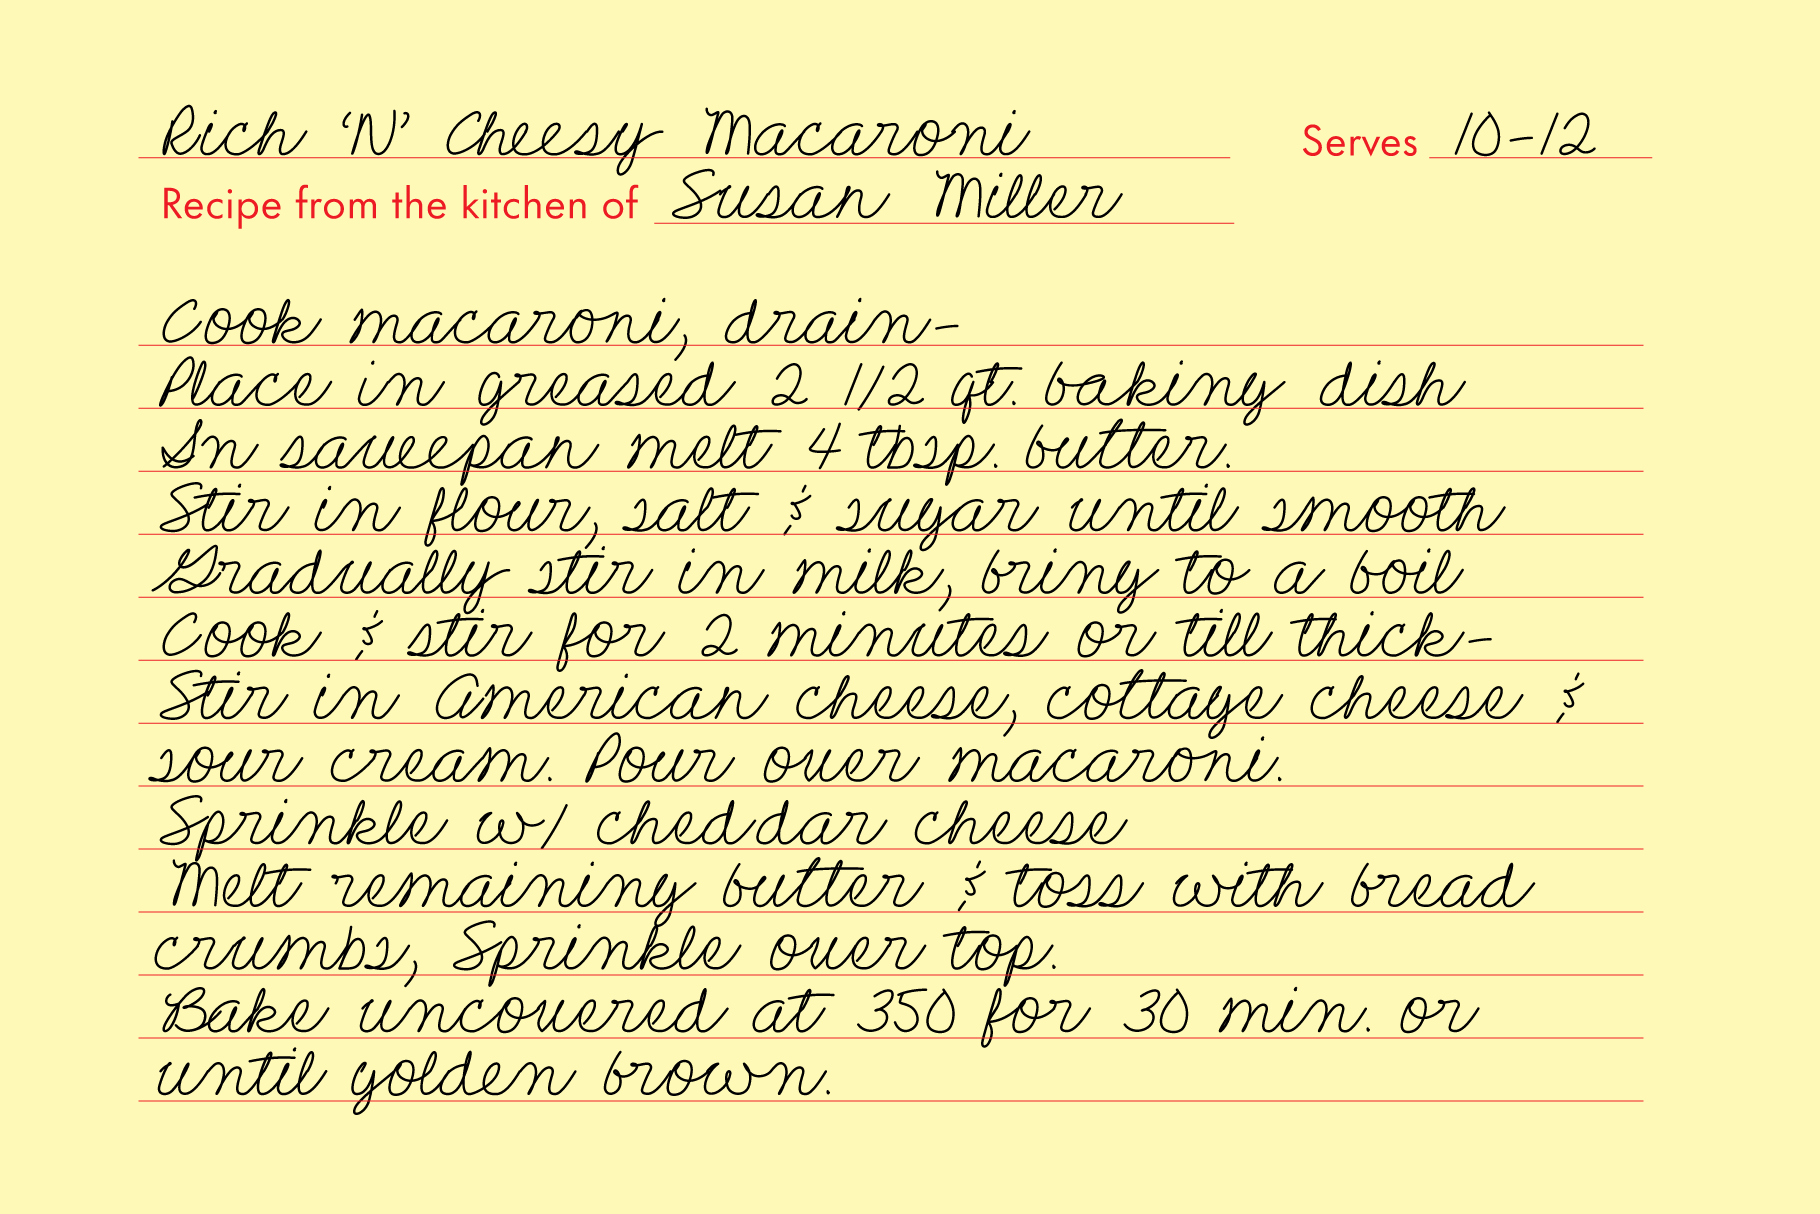 Rich ‘N’ Cheesy Macaroni Serves 10-12
Recipe from the kitchen of Susan Miller
Cook macaroni, drain-
Place in greased 2 1/2 qt. baking dish
In saucepan melt 4 tbsp. butter.
Stir in flour, salt & sugar until smooth
Gradually stir in milk, bring to a boil
Cook & stir for 2 minutes or till thick-
Stir in American cheese, cottage cheese &
sour cream. Pour over macaroni.
Sprinkle w/ cheddar cheese
Melt remaining butter & toss with bread
crumbs, Sprinkle over top.
Bake uncovered at 350 for 30 min. or
until golden brown.